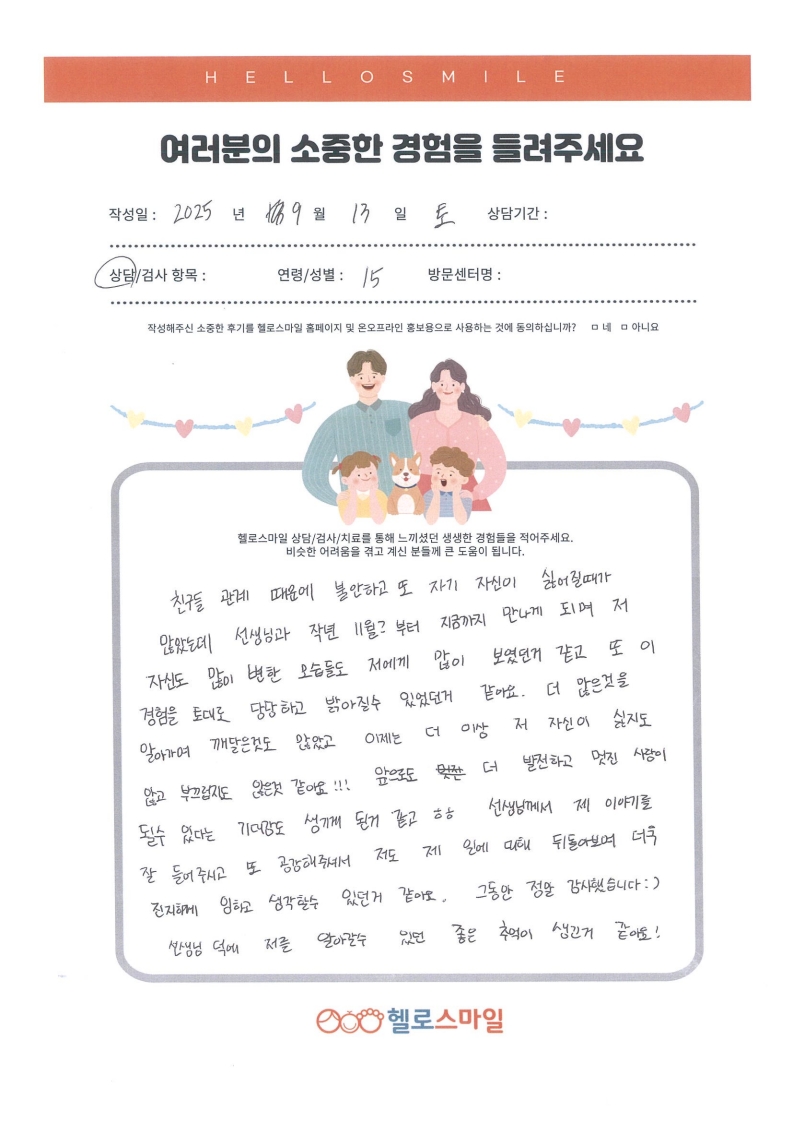 HELLOSMILE
여러분의 소중한 경험을 들려주세요
작성일 : 2025 년 9 월 13 일 토 상담기간 :
상담/검사 항목 : 연령/성별 : 15 방문센터명 :
작성해주신 소중한 후기를 헬로스마일 홈페이지 및 온오프라인 홍보용으로 사용하는 것에 동의하십니까? ㅁ 네 ㅁ 아니요
헬로스마일 상담/검사/치료를 통해 느끼셨던 생생한 경험들을 적어주세요.
비슷한 어려움을 겪고 계신 분들께 큰 도움이 됩니다.
친구들 관계 때문에 불안하고 또 자기 자신이 싫어질때가
많았는데 선생님과 작년 11월? 부터 지금까지 만나게 되며 저
자신도 많이 변한 모습들도 저에게 많이 보였던거 같고 또 이
경험을 토대로 당당하고 밝아질수 있었던거 같아요. 더 많은것을
알아가며 깨달은것도 많았고 이제는 더 이상 저 자신이 싫지도
않고 부끄럽지도 않은것 같아요!!! 앞으로도 더 발전하고 멋진 사람이
될수 있다는 기대감도 생기게 된거 같고 ㅎㅎ 선생님께서 제 이야기를
잘 들어주시고 또 공감해주셔서 저도 제 일에 대해 뒤돌아보며 더욱
진지하게 임하고 생각할수 있던거 같아요. 그동안 정말 감사했습니다 :)
선생님 덕에 저를 알아갈수 있던 좋은 추억이 생긴거 같아요!
헬로스마일